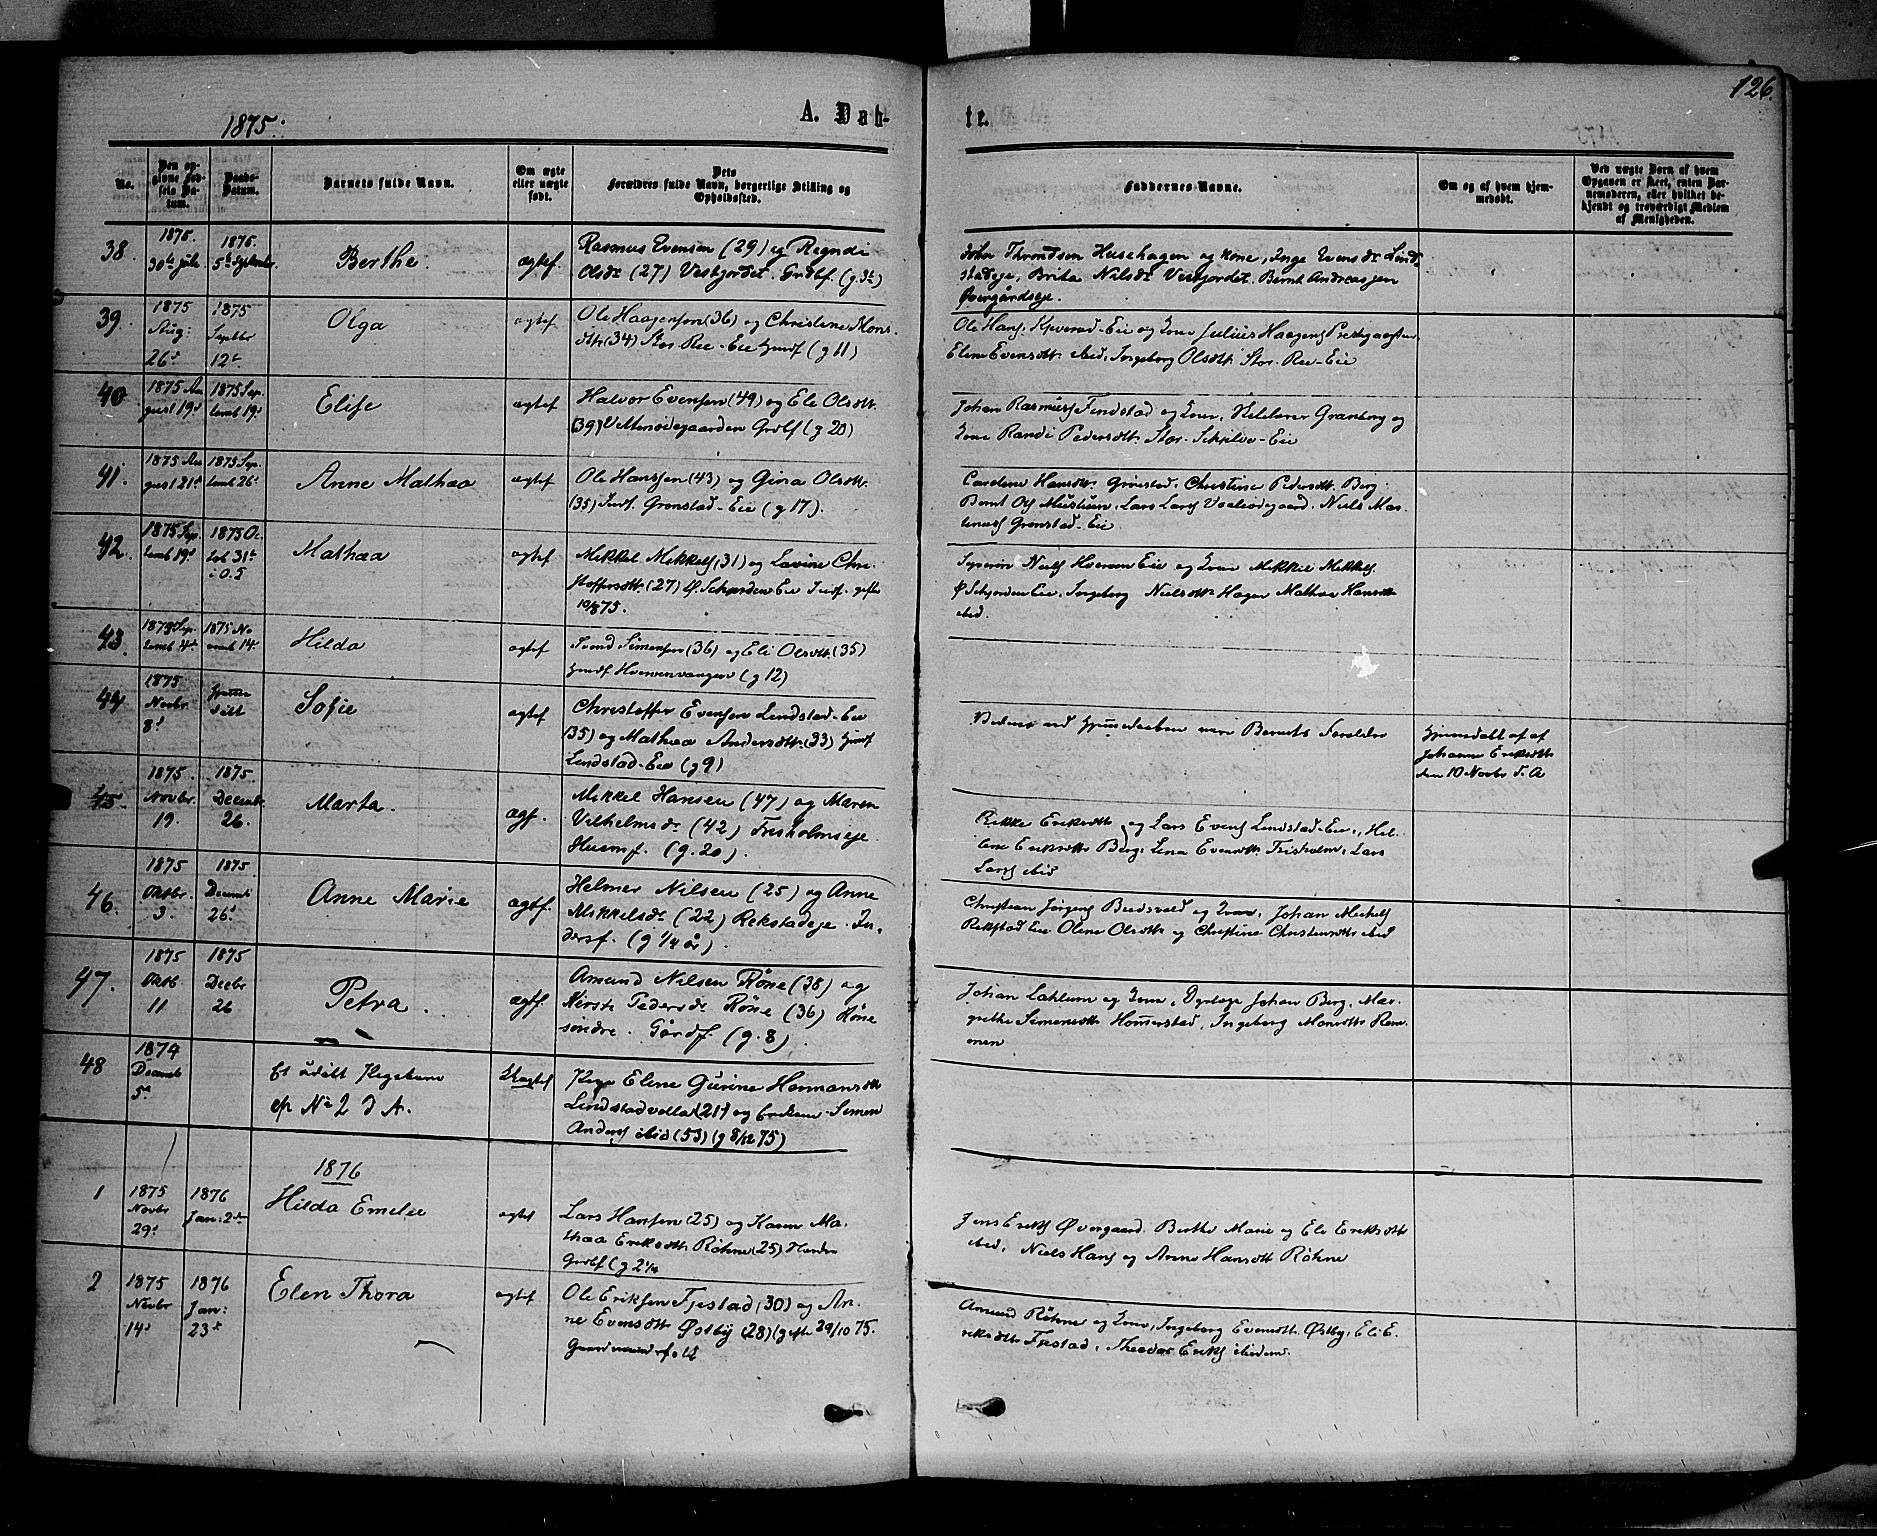 126.
1875.
A. Døb-
te.
No.
Den op-
givne Fød-
sels Da-
tum.
Daabs-
Datum.
Barnets fulde Navn.
Om ægte
eller uægte
født.
Dets
Forældres fulde Navn, borgerlige Stilling og
Opholdssted.
Faddernes Navne.
Om og af hvem hjem-
medøbt.
Ved uægte Børn af hvem
Opgaven er skeet, enten Bar-
nemoderen, eller hvilket be-
kjendt og troværdigt Medlem
af Menigheden.
38.
1875.
30te Juli
1875.
5te September
Berthe.
ægtef
Rasmus Evensen (29) og Regndi
Olsdt (27) Vestjordet. Grdbf. (g. 3te)
John Throndsen Husehagen og kone, Inge Evensdt Lind-
stadeje, Brita Nilsdt Vestjordet. Bernt Andreassen
Overgårdseje.
39.
1875
Aug:
26d
1875
Septbr
12te
Olga
ægtef
Ole Haagensen (36) og Christine Mons-
dtr (34) Stor Ree-Eie Husmf (g 11)
Ole Hans. Kværad-Eie og Kone Julius Haagens
Elene Evensdtr ibid, Ingeborg Olsdtr Stor-Ree-Eie
40
1875 Au
gust 19d
1875 Sep.
temb 19d
Elise
ægtef
Halvor Evensen (49) og Eli Olsdtr
(39) Grdbf (g 20)
Johan Rasmuss Findstad og Kone, Granborg og
Kone Randi Pedersdtr Stor- -Eie
41.
1875 Au
gust 21d
1875 Sep.
temb 26d
Anne Mathea
ægtef
Ole Hanssen (43) og Gina Olsdtr
(35) Indf. Gronstad-Eie (g 17).
Caroline Hansdtr Gronstad, Christine Pedersdtr Berg
Bernt Ols Lars Larss Niels Mar-
Gronstad-Eie
42.
1875 Sep.
temb 19d
1875 Oc
tob 31te
i O.S
Mathea
ægtef
Mikkel Mikkels (31) og Lovine Chri-
stoffersdtr (27) Ø. Schjorden Eie Indf. gifte
10/8 75.
Syverin Niels Eie og Kone Mikkel Mikkels.
Ø Schjorden Eie, Ingeborg Nielsdtr Hagen Mathea Hansdtr
ibid.
43.
1875 Sep.
temb 4de
1875 No
vemb 14d
Hilda
ægtef
Svend Simensen (36) og Eli Olsdtr (35)
Husmf (g 12)
44
1875
Novbr
8d
Hjemme
døbt
Sofie
ægtef
Christoffer Evensen Lindstad-Eie
(35) og Mathea Andersdtr (33) Husmf
Lindstad-Eie (g 9)
Vidner ved Hjemmedaaben vare Barnets Forældre
Hjemdøbt af
Johanne Eriksdtr
den 10 Novbr S. A
45.
1875.
Novbr.
19.
1875.
Decemb.
26.
Marta.
ægf.
Mikkel Hansen (47) og Maren
Vilhelmsdr (42) Frisholmseje
Husmf. (g. 20).
Rikke Eriksdtr og Lars Evens Lindstad-Eie, Hel-
ene Eriksdtr Berg, Lina Evensdtr Frisholm, Lars
Larss ibid
46.
1875
Oktbr.
3.
1875
Decemb
26d
Anne Marie
ægtf.
Helmer Nilsen (25) og Anne
Mikkelsdt (22) Rekstadeje In-
dersf. (g 1/4 år).
Christian Jørgens og Kone, Johan Mickels
Rekstad Eie Olene Olsdtr og Christine Christensdtr ibid
47.
1875
Oktb
11
1875
Decbr
26
Petra.
ægtf.
Amund Nilsen Röne (38) og
Kirste Pedersdr Röne (36) Röne
søndre. Gårdf. (g. 8).
Johan Lahlum og Kone, Johan Berg, Mar-
grethe Simensdtr Homerstad, Ingeborg Monsdtr Rem-
men
48
1874
Decemb
5te
Et udøbt Pigebarn
cfr No 2 d A.
Uægtef
Pige Elene Gurine Hermansdtr
Lindstadvolla (21) og Enkem. Simen
Anders ibid (53) (g 8/12 75)
1876
1
1875
Novbr
29d
1876
Jan: 2den
Hilda Emelie
ægtef
Lars Hansen (25) og Karen Ma-
thea Eriksdtr Röhne (25) Nordre
Grdbf (g 2 1/4
Jens Eriks Øvergaard. Berthe Marie og Eli Eriksdtr
ibid, Niels Hans og Anne Hansdtr Röhne
2
1875
Novbr
14d
1876
Jan:
23de
Elen Thora
ægtef
Ole Eriksen Fjestad (30) og An-
ne Evensdtr Østby (28) (gifte 29/10 75.
Gaardmænd
Amund Röhne og Kone, Ingeborg Evensdtr Østby, Eli E-
riksdtr Fjestad, Theodor Eriks ibidem.